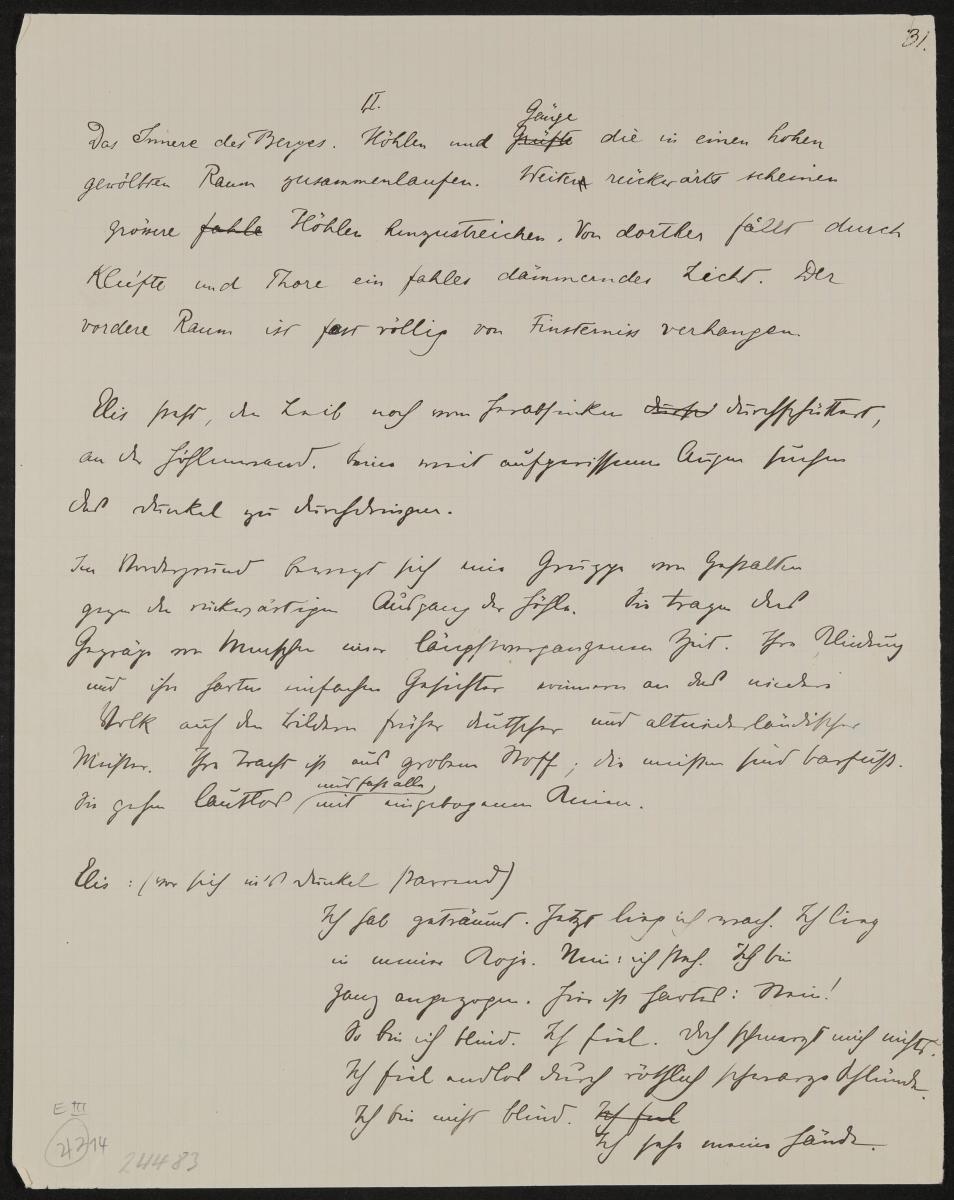 31.
II.
Gänge
Das Innere des Berges. Höhlen und Grüfte die in einen hohen
gewölbten Raum zusammenlaufen. Weiter rückwärts scheinen
grössere fahle Höhlen hinzustreichen. Von dorther fällt durch
Klüfte und Thore ein fahles dämmerndes Licht. Der
vordere Raum ist fast völlig von Finsterniss verhangen.
Elis steht, den Leib noch vom Herabsinken durchschüttert,
an der Höhlenwand. Seine weit aufgerissenen Augen suchen
das Dunkel zu durchdringen.
Im Vordergrund bewegt sich eine Gruppe von Gestalten
gegen den rückwärtigen Ausgang der Höhle. Sie tragen das
Gepräge von Menschen einer längstvergangenen Zeit. Ihre Kleidung
und ihre harten einfachen Gesichter erinnern an das niedere
Volk auf den Bildern früher deutscher und altniederländischer
Meister. Ihre Tracht ist aus grobem Stoff; die meisten sind barfuss.
und fast alle
Sie gehen lautlos mit eingebogenen Knieen.
Elis: (vor sich in's Dunkel starrend)
Ich hab geträumt. Jetzt lieg ich wach. Ich lieg
in meiner Koje. Nein: ich steh. Ich bin
ganz angezogen. Hier ist hartes: Stein!
So bin ich blind. Ich fiel. Doch schmerzt mich nichts.
Ich fiel endlos durch röthlich schwarze Schlünde.
Ich bin nicht blind. Ich fiel
Ich sehe meine Hände.
E III
14
24483